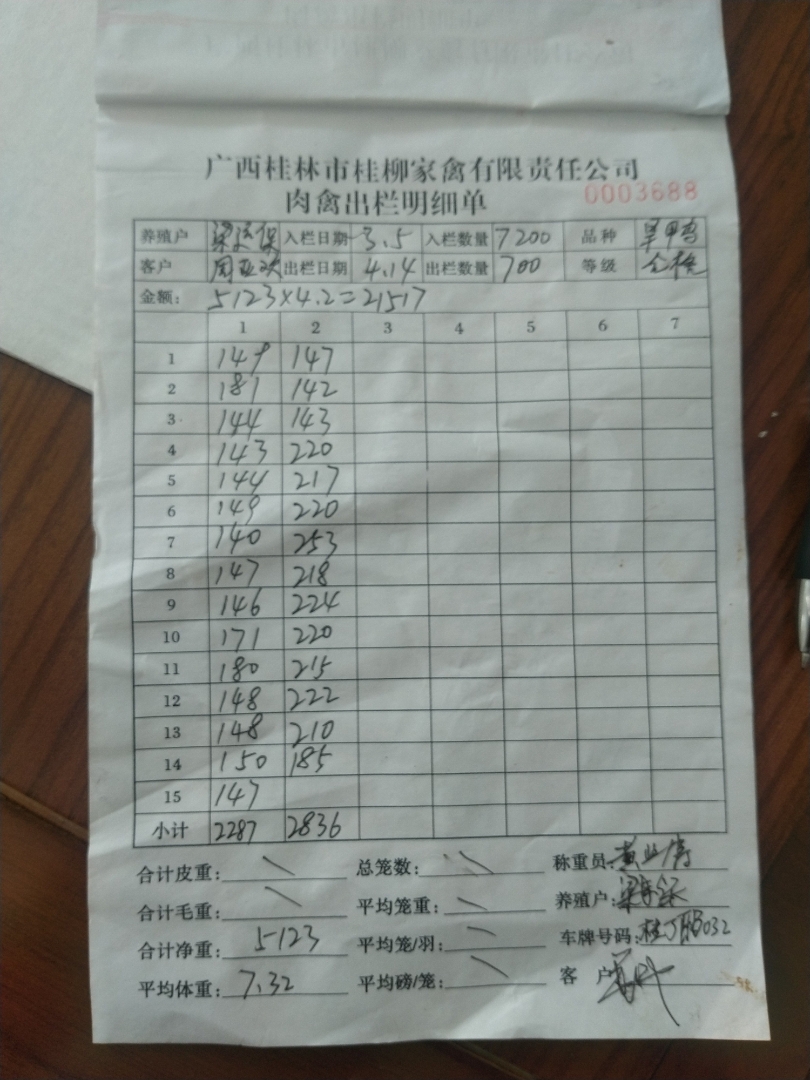 广西桂林市桂柳家禽有限责任公司
肉禽出栏明细单 0003688
养殖户 入栏日期 3.5 入栏数量 7200 品种 旱鸭
客户 周亚欢 出栏日期 4.14 出栏数量 700 等级 合格
金额: 5123×4.2=21517
1 2 3 4 5 6 7
1 149 147
2 181 142
3 144 143
4 143 220
5 144 217
6 149 220
7 140 253
8 147 218
9 146 224
10 171 220
11 180 215
12 148 222
13 148 210
14 150 185
15 147
小计 2287 2836
合计皮重: 总笼数: 称重员:
合计毛重: 平均笼重: 养殖户:
合计净重: 5123 平均笼/羽: 车牌号码:
平均体重: 7.32 平均磅/笼: 客户